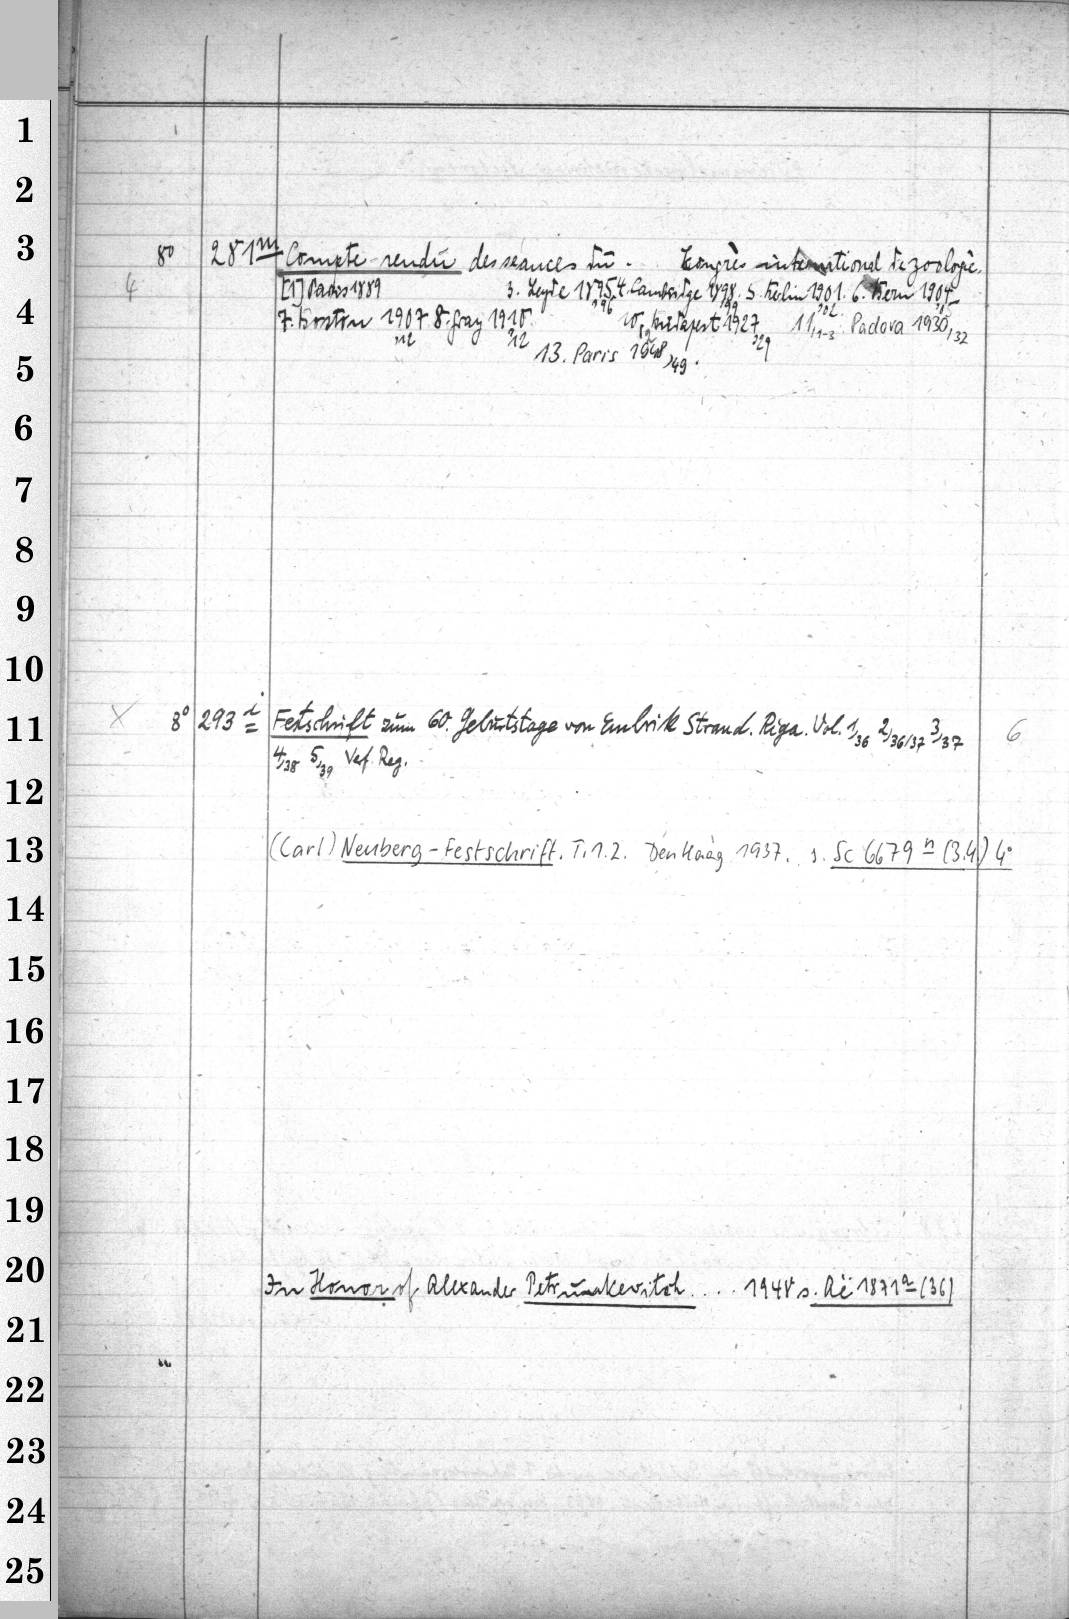 1
2
3
8° 281m Compte rendu des séances du . . . Congrès international de zoologie.
4 [1] Paris 1889 3. Leyde 1895,96 4. Cambridge 1898,99 5. Berlin 1901,02 6. Bern 1904,05
4
7. Boston 1907,12 8. Graz 1910,12 10, Budapest 1927,29 11,1-3 Padova 1930,32
13. Paris 1948,49.
5
6
7
8
9
10
11
X 8° 293 i Festschrift zum 60. Geburtstage von Embrik Strand. Riga. Vol. 1/36 2/36/37 3/37 6
4/38 5/39 Verf. Reg.
12
13
(Carl) Neuberg-Festschrift. T. 1.2. Den Haag 1937. s. Sc 6679 n (3.4) 4°
14
15
16
17
18
19
20
In Honor of Alexander Petrunkevitch . . . . 1948 s. Aë 1871 a (36)
21
22
23
24
25